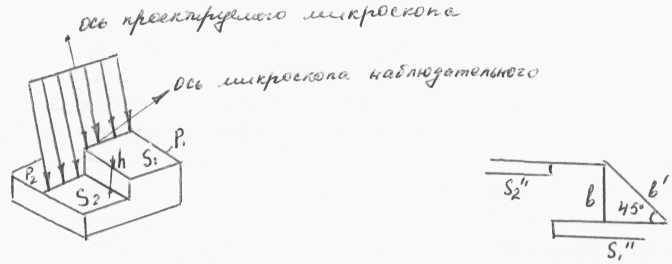 ось проектируемого микроскопа
ось микроскопа наблюдательного
P₁
h
S₁
P₂
S₂
S₂"
b
b'
45°
S₁"